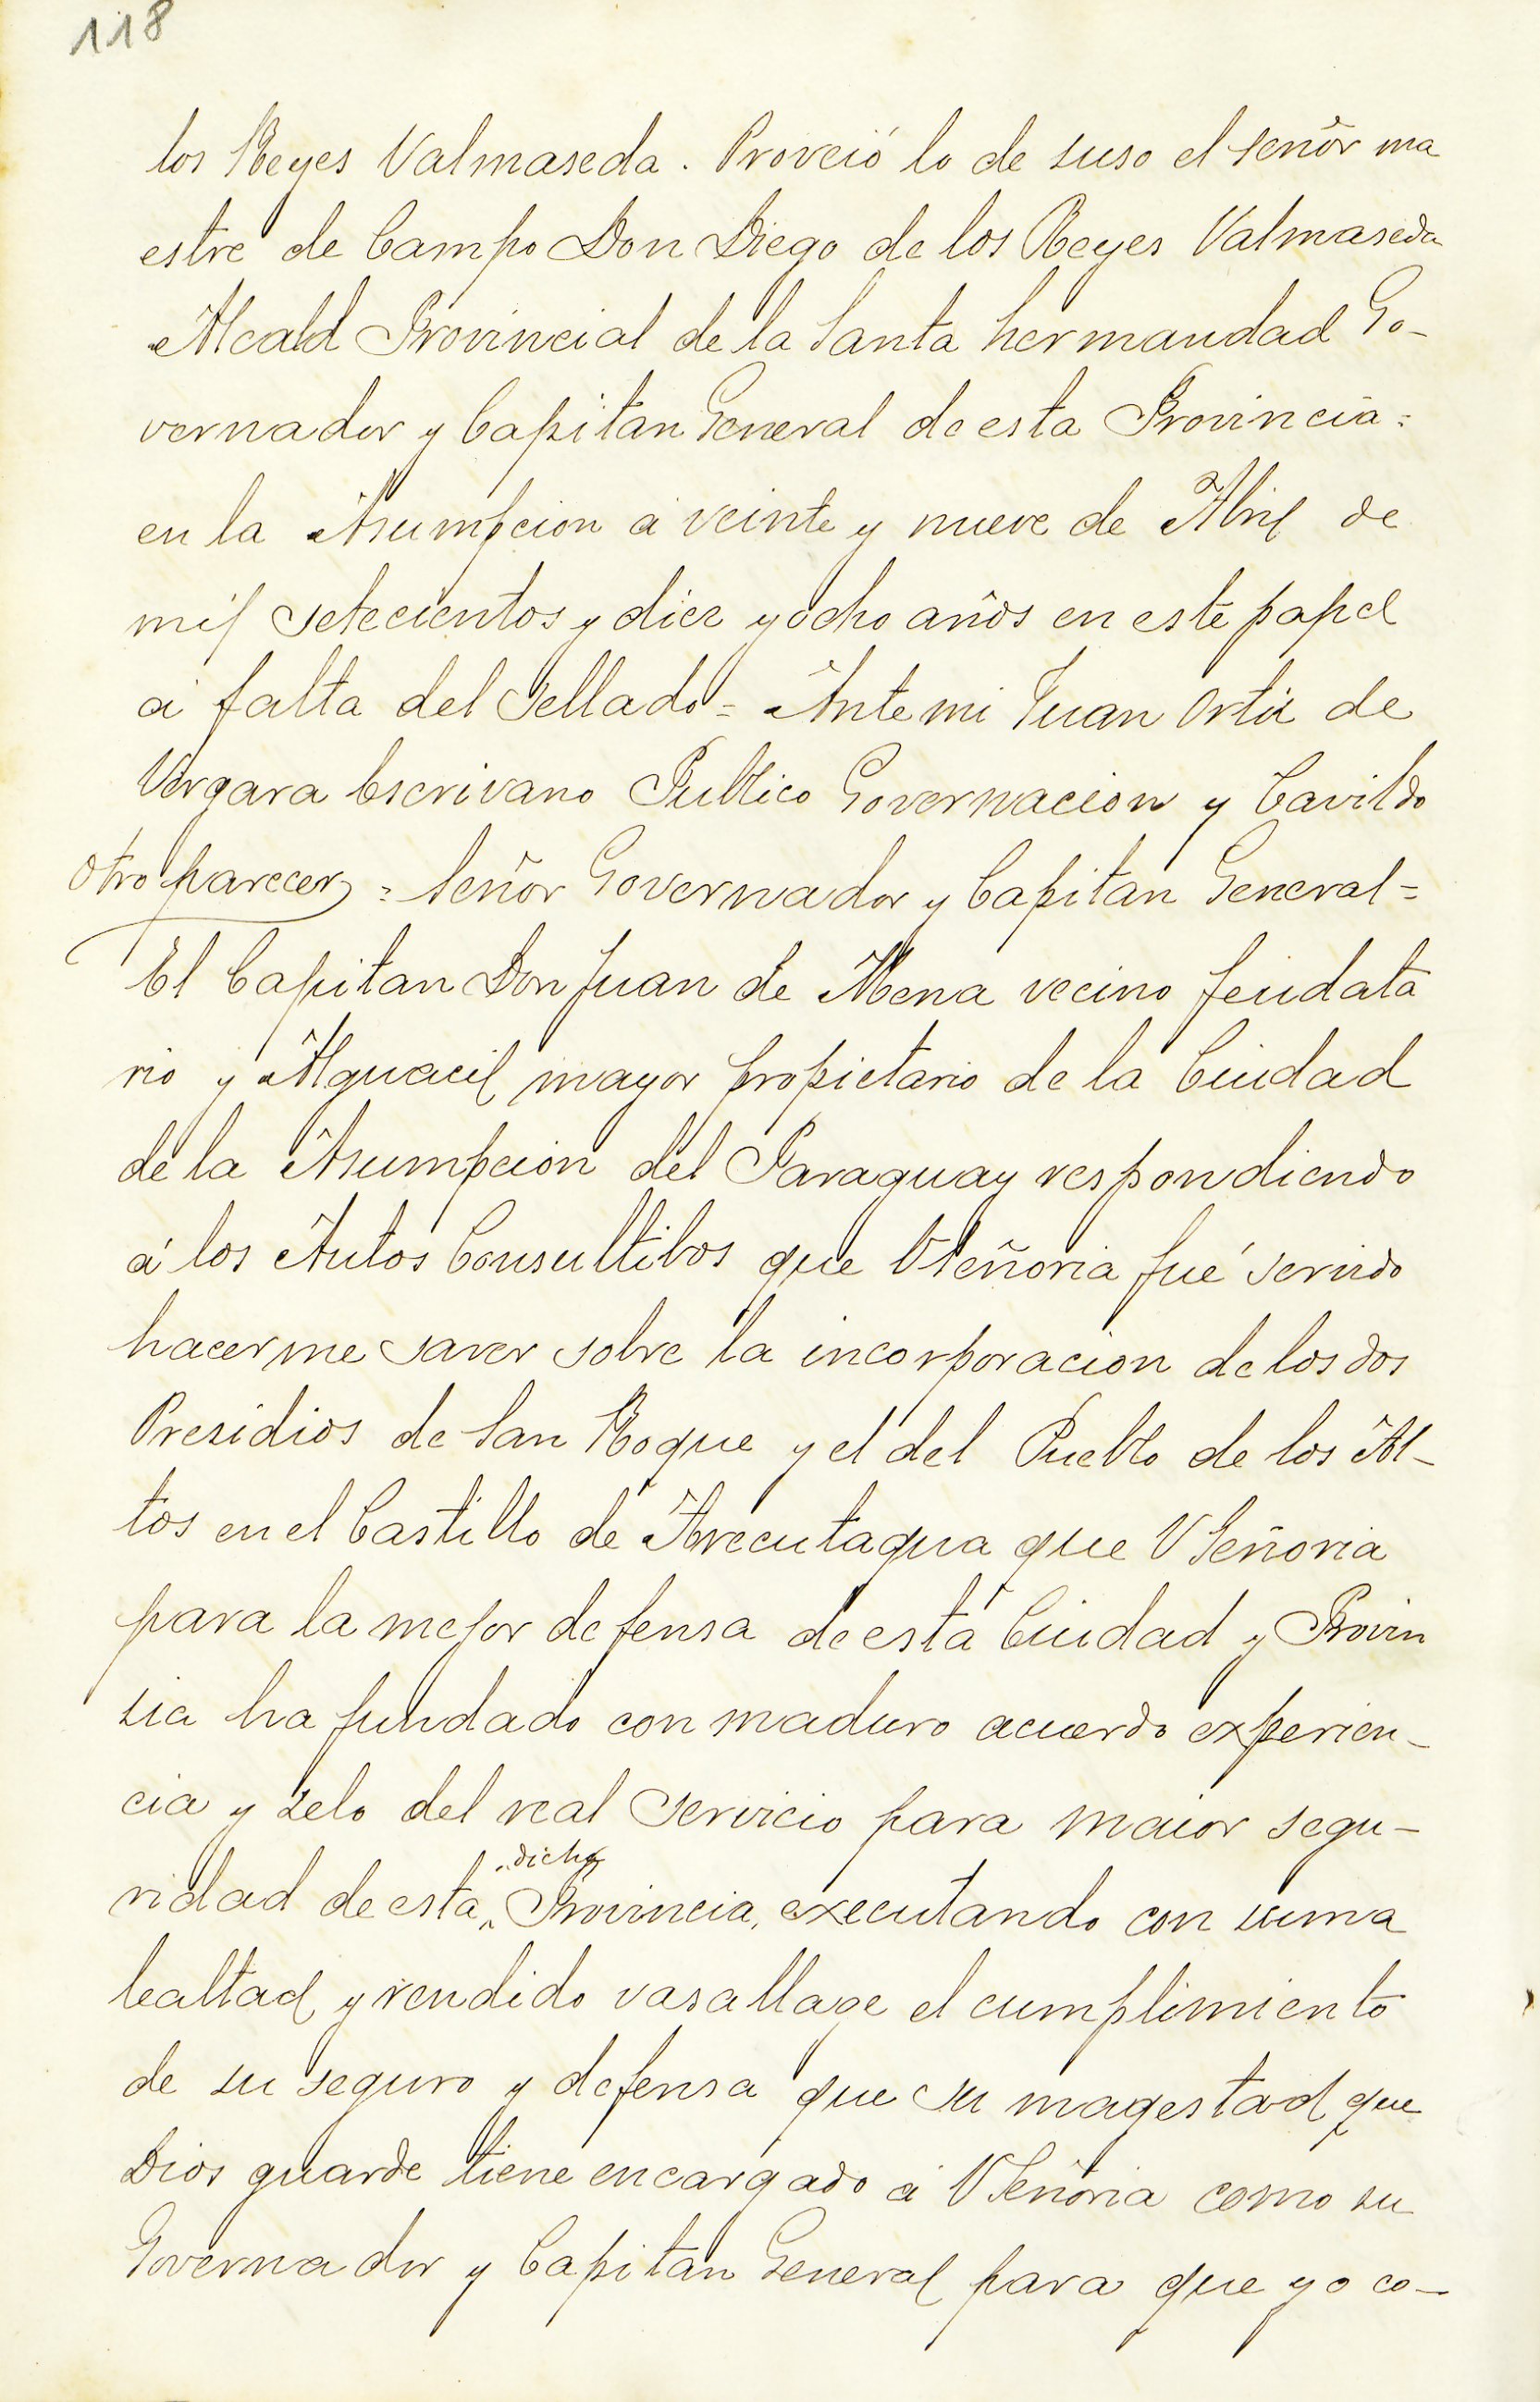 118
los Reyes Valmaseda. Proveió lo de suso el señor ma
estre de Campo Don Diego de los Reyes Valmaseda
Alcald Provincial de la Santa hermandad Go-
vernador y Capitan General de esta Provincia=
en la Asumpcion á veinte y nueve de Abril de
mil setecientos y diez y ocho años en este papel
á falta del Sellado= Ante mi Juan Ortiz de
Vergara Escrivano Publico Governacion y Cavildo
Otro parecer = Señor Governador y Capitan General=
El Capitan Don Juan de Mena vecino feudata
rio y Alguacil mayor propietario de la Ciudad
de la Asumpcion del Paraguay respondiendo
á los Autos Consultibos que VSeñoria fué servido
hacerme saver sobre la incorporacion de los dos
Presidios de San Roque y el del Pueblo de los Al-
tos en el Castillo de Arecutagua que VSeñoria
para la mejor defensa de esta Ciudad y Provin
sia ha fundado con maduro acuerdo experien-
cia y zelo del real servicio para maior segu-
ridad de esta "dicha" Provincia, executando con suma
lealtad y rendido vasallage el cumplimiento
de su seguro y defensa que su magestad que
Dios guarde tiene encargado á VSeñoria como su
Governador y Capitan General para que yo co-